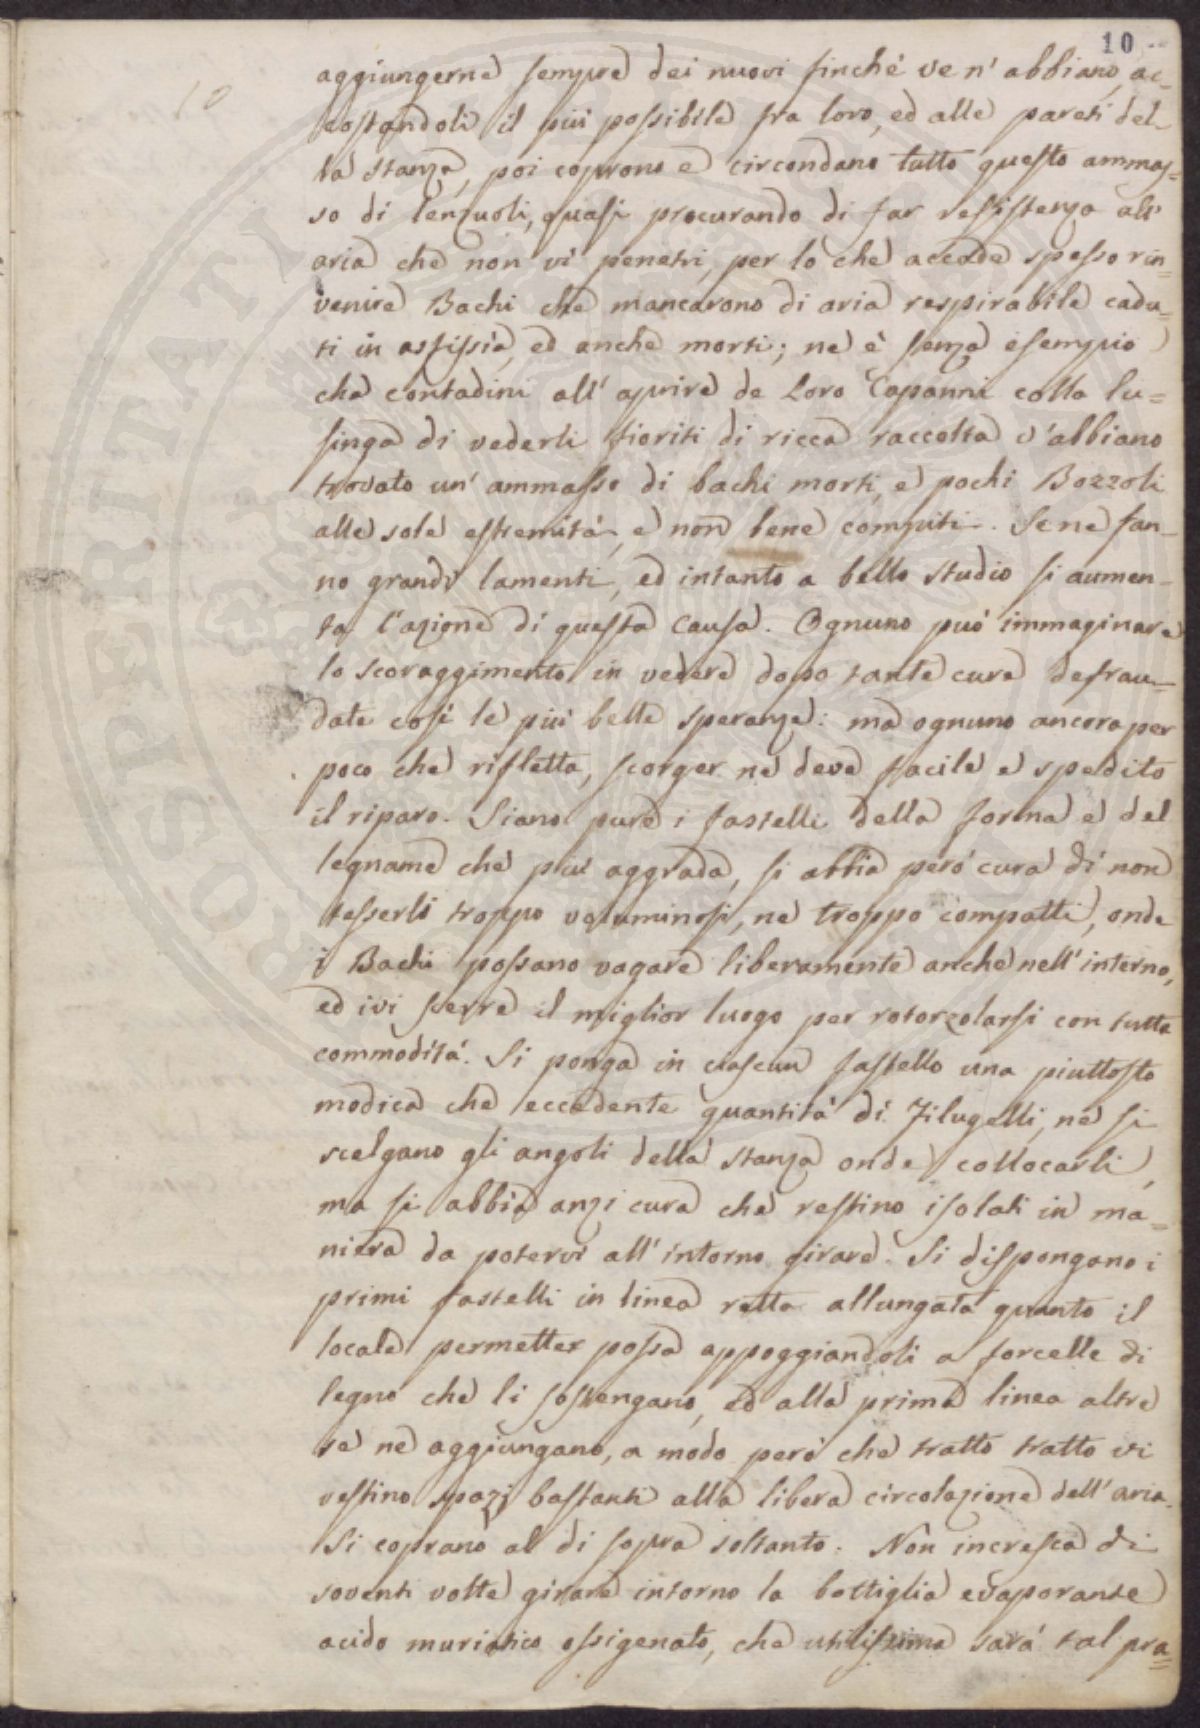 10
10
aggiungerne sempre dei nuovi finchè ve n' abbiano, ac-
costandoli il più possibile fra loro, ed alle pareti del-
la stanza, poi coprono e circondano tutto questo ammas=
so di lenzuoli, quasi procurando di far resistenza all'
aria che non vi penetri, per lo che accade spesso rin=
venire Bachi che mancarono di aria respirabile cadu=
ti in asfissia, ed anche morti; nè è senza esempio
che contadini all' aprire de loro Capanni colla lu=
singa di vederli fioriti di ricca raccolta v'abbiano
trovato un' ammasso di bachi morti, e pochi Bozzoli
alle sole estremità, e non bene compiti. Se ne fan-
no grandi lamenti, ed intanto a bello studio si aumen-
ta l'azione di questa Causa. Ognuno può immaginare
lo scoraggimento in vedere dopo tante cure defrau-
date così le più belle speranze: ma ognuno ancora per
poco che rifletta, scorger ne deve facile e spedito
il riparo. Siano pure i fastelli della forma e del
legname che più aggrada, si abbia però cura di non
tesserli troppo voluminosi, nè troppo compatti, onde
i Bachi possano vagare liberamente anche nell' interno,
ed ivi scerre il miglior luogo per rotorzolarsi con tutta
commodità. Si ponga in ciascun fastello una piuttosto
modica che eccedente quantità di Filugelli, nè si
scelgano gli angoli della stanza onde collocarli,
ma si abbia anzi cura che restino isolati in ma=
niera da potervi all' intorno girare. Si dispongano i
primi fastelli in linea retta allungata quanto il
locale permetter possa appoggiandoli a forcelle di
legno che li sostengano, ed alla prima linea altre
se ne aggiungano, a modo però che tratto tratto vi
restino spazj bastanti alla libera circolazione dell' aria.
Si coprano al di sopra soltanto. Non incresca di
soventi volte girare intorno la bottiglia evaporante
acido muriatico ossigenato, che utilissima sarà tal pra=
PROSPERITATI